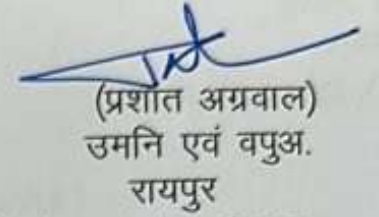 (प्रशांत अग्रवाल)
उमनि एवं वपुअ.
रायपुर